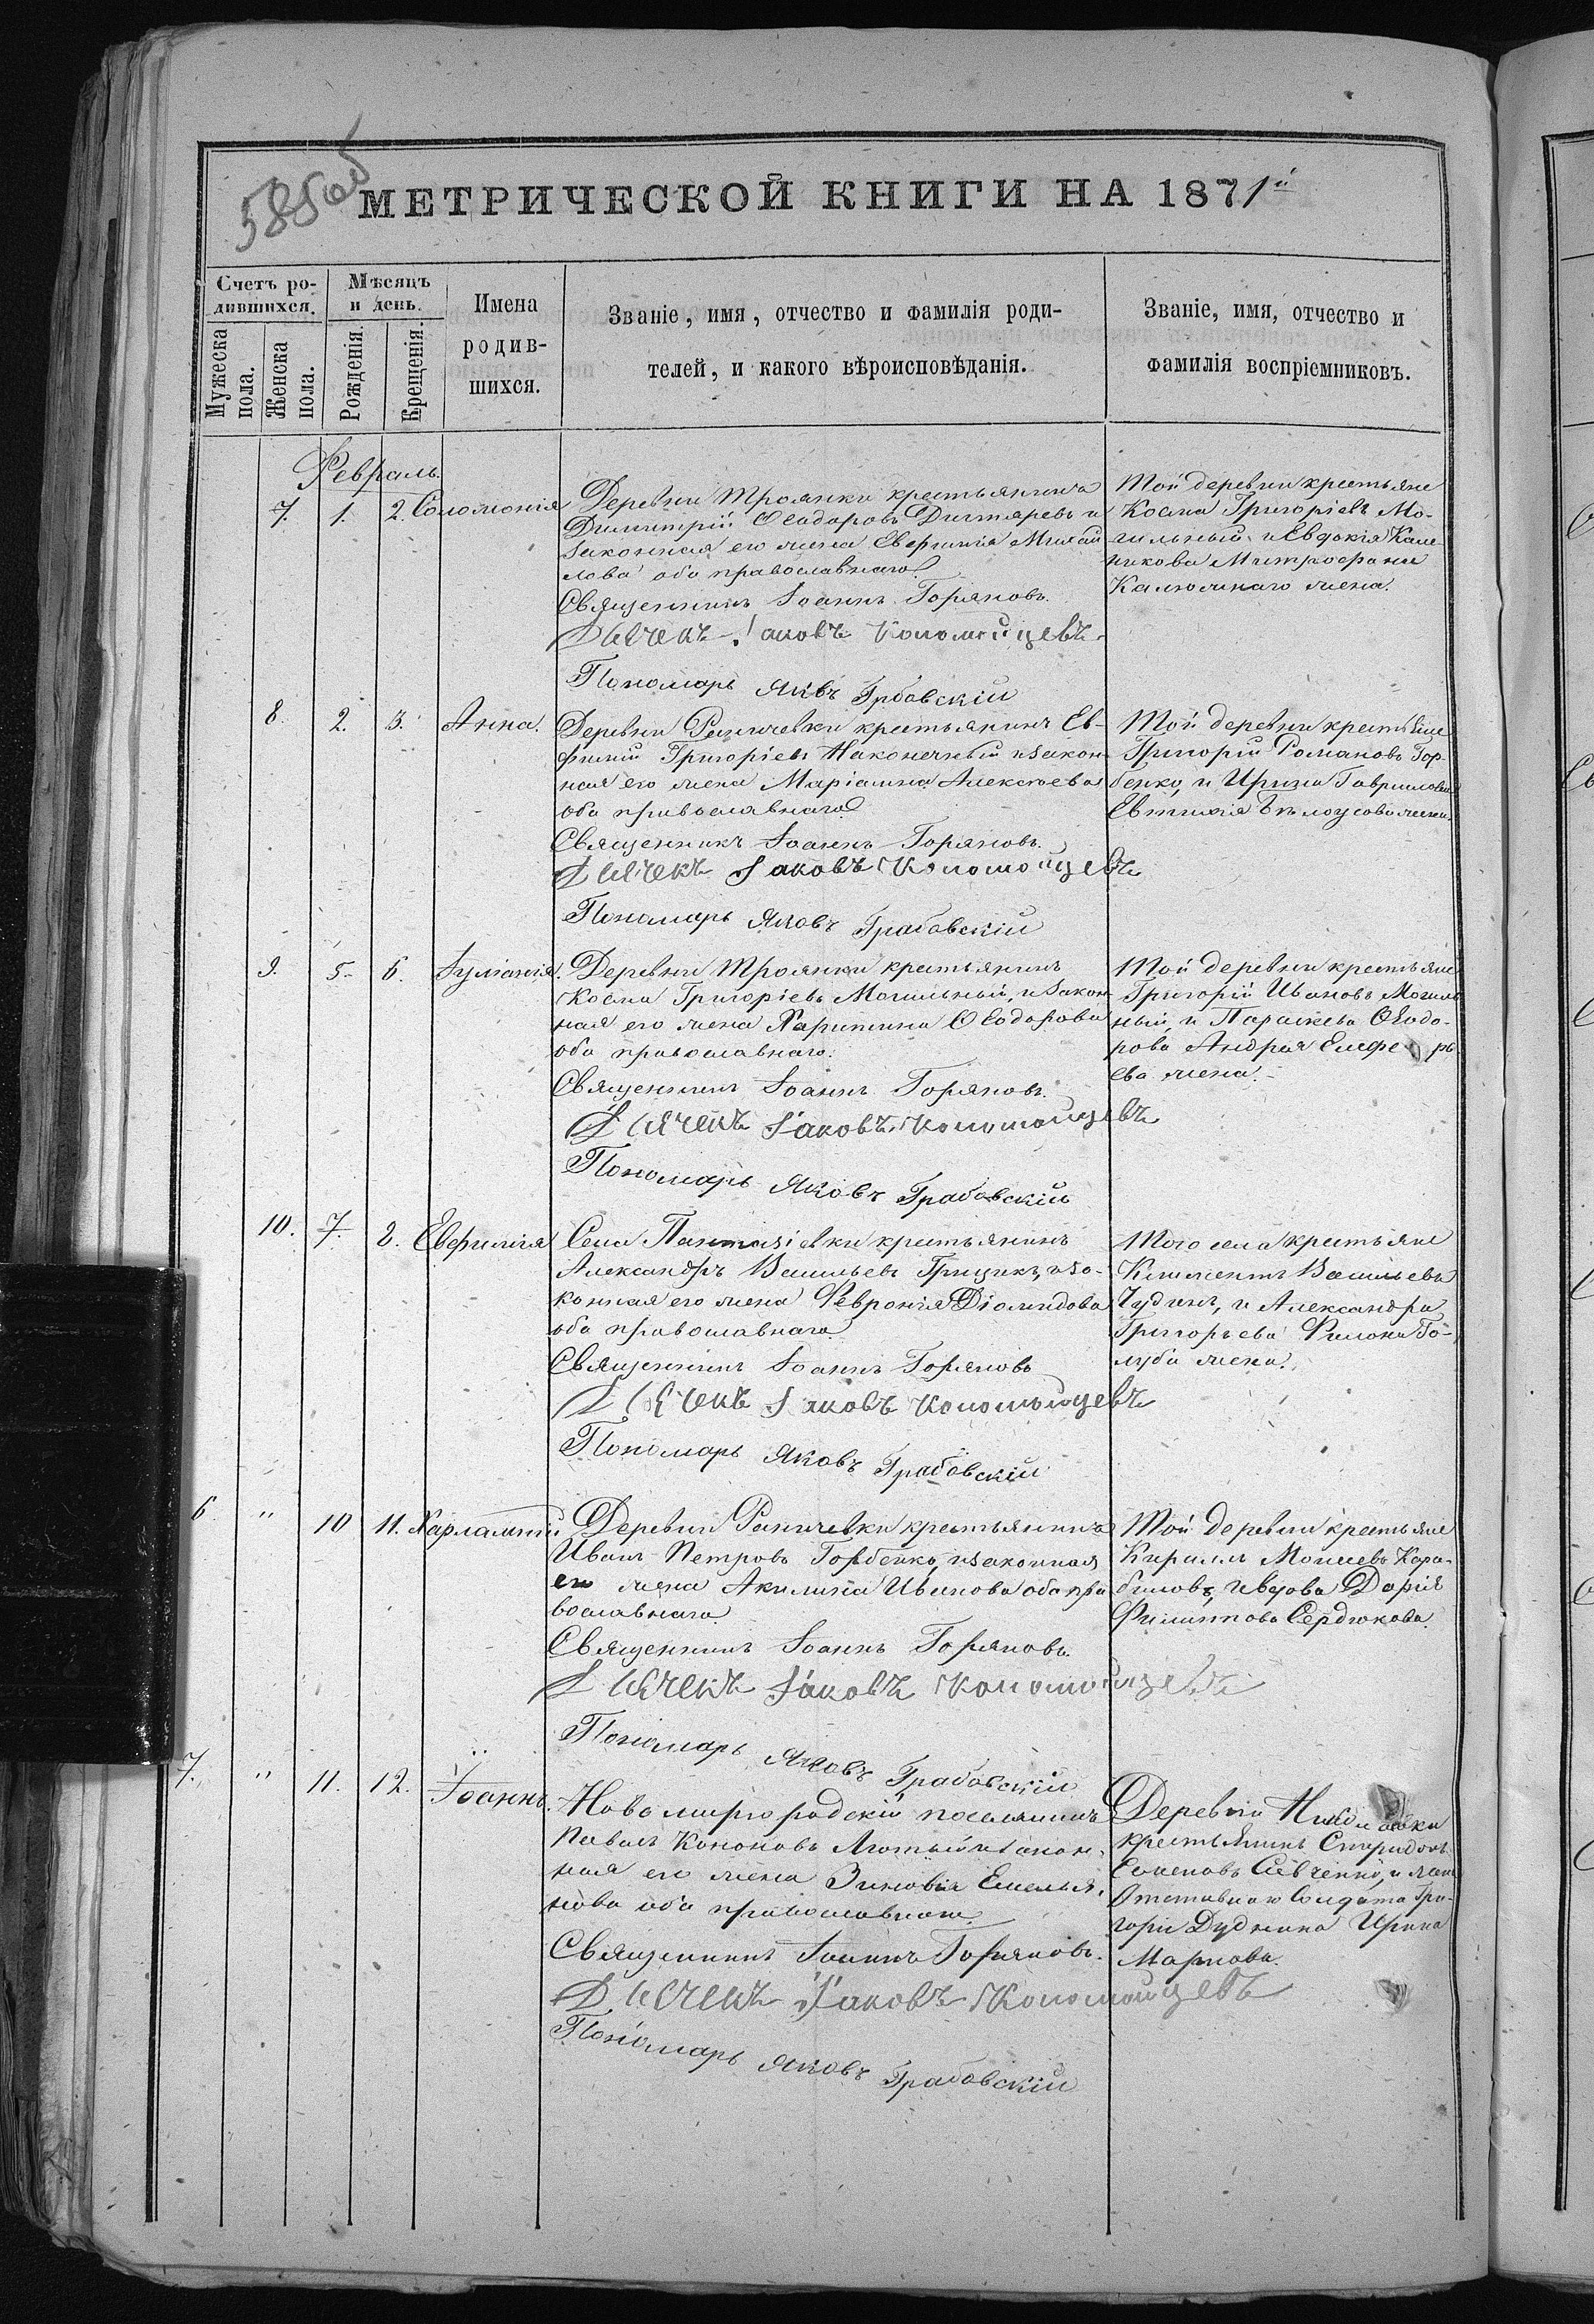 588об
МЕТРИЧЕСКОЙ КНИГИ НА 1871й
Счетъ ро-
дившихся.
Мѣсяцъ
и день.
Мужеска
пола.
Женска
пола.
Рожденія.
Крещенія.
Имена
родив-
шихся.
Званіе, имя, отчество и фамилія роди-
телей, и какого вѣроисповѣданія.
Званіе, имя, отчество и
фамилія воспріемниковъ.
Февраль.
7. 1. 2. Соломонія
Деревни Троянки крестьянинъ
Димитрій Ѳеодоровъ Дигтяревъ и
законная его жена Евфимія Михаи
лова оба православнаго.
Священникъ Іоаннъ Горяновъ.
Дьячекъ Іаковъ Коломойцевъ
Пономарь Яквъ Грбовскій
Той деревни крестьяне
Косма Григоріевъ Мо-
гильный и Евдокія
Митрофана
жена.
8. 2. 3. Анна.
Деревни крестьянинъ Ев-
фимій Григоріевъ Наконечный и закон-
ная его жена Маріамна Алексѣева
оба православнаго
Священникъ Іоаннъ Горяновъ.
Дьячекъ Іаковъ Коломойцевъ
Пономарь Яковъ Грабовскій
Той деревни крестьяне
Григорій Романовъ Гор-
бенко, и Ирина Гаврилова
Евтихія Бѣлоусова жена.
9. 5. 6. Іуліанія.
Деревни Троянки крестьянинъ
Косма Григоріевъ Могильный, и закон-
ная его жена Харитина Ѳеодорова
оба православнаго.
Священникъ Іоаннъ Горяновъ.
Дьячекъ Іаковъ Коломойцевъ
Пономарь Яковъ Грабовскій
Той деревни крестьяне
Григорій Ивановъ Могиль-
ный, и Параскева Ѳеодо-
рова Андрея
ева жена.
10. 7. 8. Евфимія
Села Пантазіевки крестьянинъ
Александръ Васильевъ Грицикъ, и за-
конная его жена Февронія Діомидова
оба православнаго
Священникъ Іоаннъ Горяновъ
Дьячекъ Іаковъ Коломойцевъ
Пономарь Яковъ Грабовскій
Того села крестьяне
Климентъ Васильевъ
Чудинъ, и Александра
Григорьева Филона Го-
луба жена.
6 " 10 11. Харлампій
Деревни крестьянинъ
Иванъ Петровъ Горбенко, и законная
его жена Акилина Иванова оба пра
вославнаго.
Священникъ Іоаннъ Горяновъ.
Дьячекъ Іаковъ Коломойцевъ
Пономарь Яковъ Грабовскій
Той деревни крестьяне
Кириллъ Моисеевъ Кара-
биновъ, и вдова Дарія
Филиппова Сердюкова.
7. " 11. 12. Іоаннъ.
Новомиргородскій поселянинъ
Павелъ Кононовъ Лютый и закон-
ная его жена Зиновія Емелья-
нова оба православнаго.
Священникъ Іоаннъ Горяновъ.
Дьячекъ Іаковъ Коломойцевъ
Пономарь Яковъ Грабовскій
Деревни
крестьянинъ Спиридонъ
Семеновъ Савченко, и жена
Отставнаго Солдата Гри-
горія Дудника Ирина
Маркова.